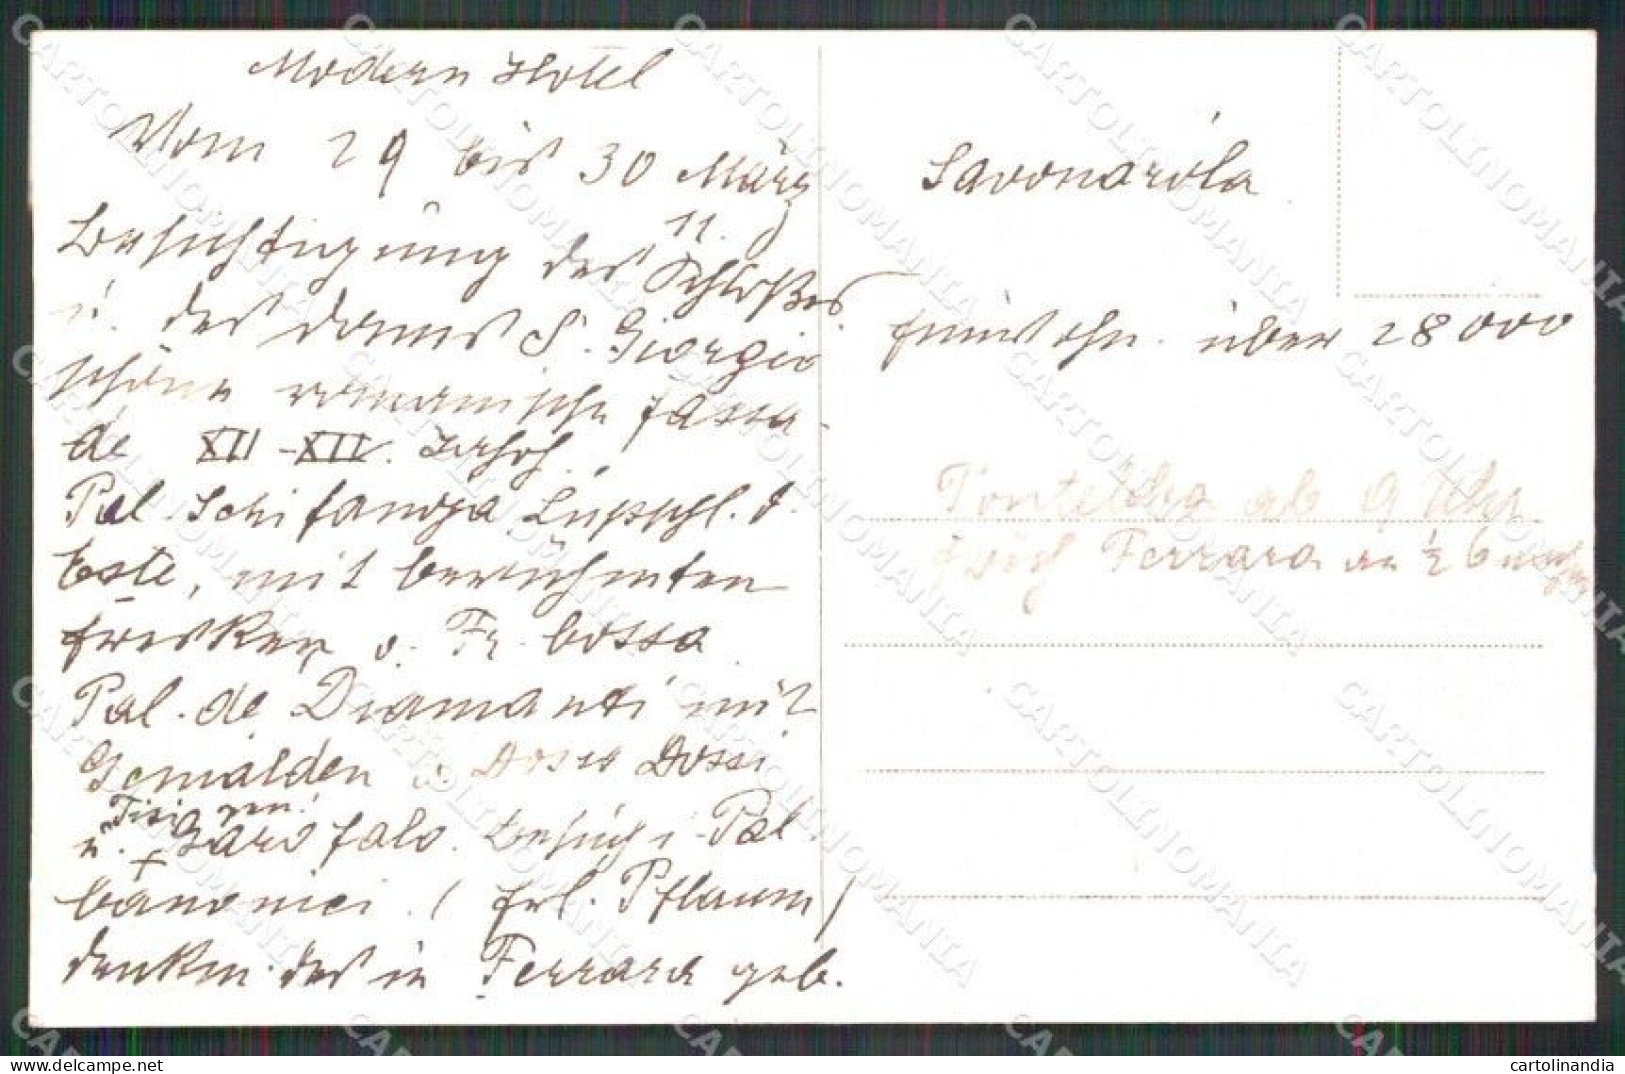 Modern Hotel
Vom 29 bis 30 März
11.
Besichtigung des Schloßes
u. des Doms S. Giorgio
schöne romanische Fassa-
de XII-XIV. Jrhdt.
Pal. Schifanoja Lustschl. d.
Este, mit berühmten
Fresken v. Fr. Cossa
Pal. de Diamanti mit
Gemälden v. Dosso Dossi
Tizi
u. Garofalo. Besuch i. Pal.
Canonici. (Frl. Pflaum)
denkm. des in Ferrara geb.
Savonaróla
Einwohn. über 28000
Pontelagoscuro ab 9 Uhr
Ferrara an ½ 6
CARTOLINOMANIA
cartolinandia